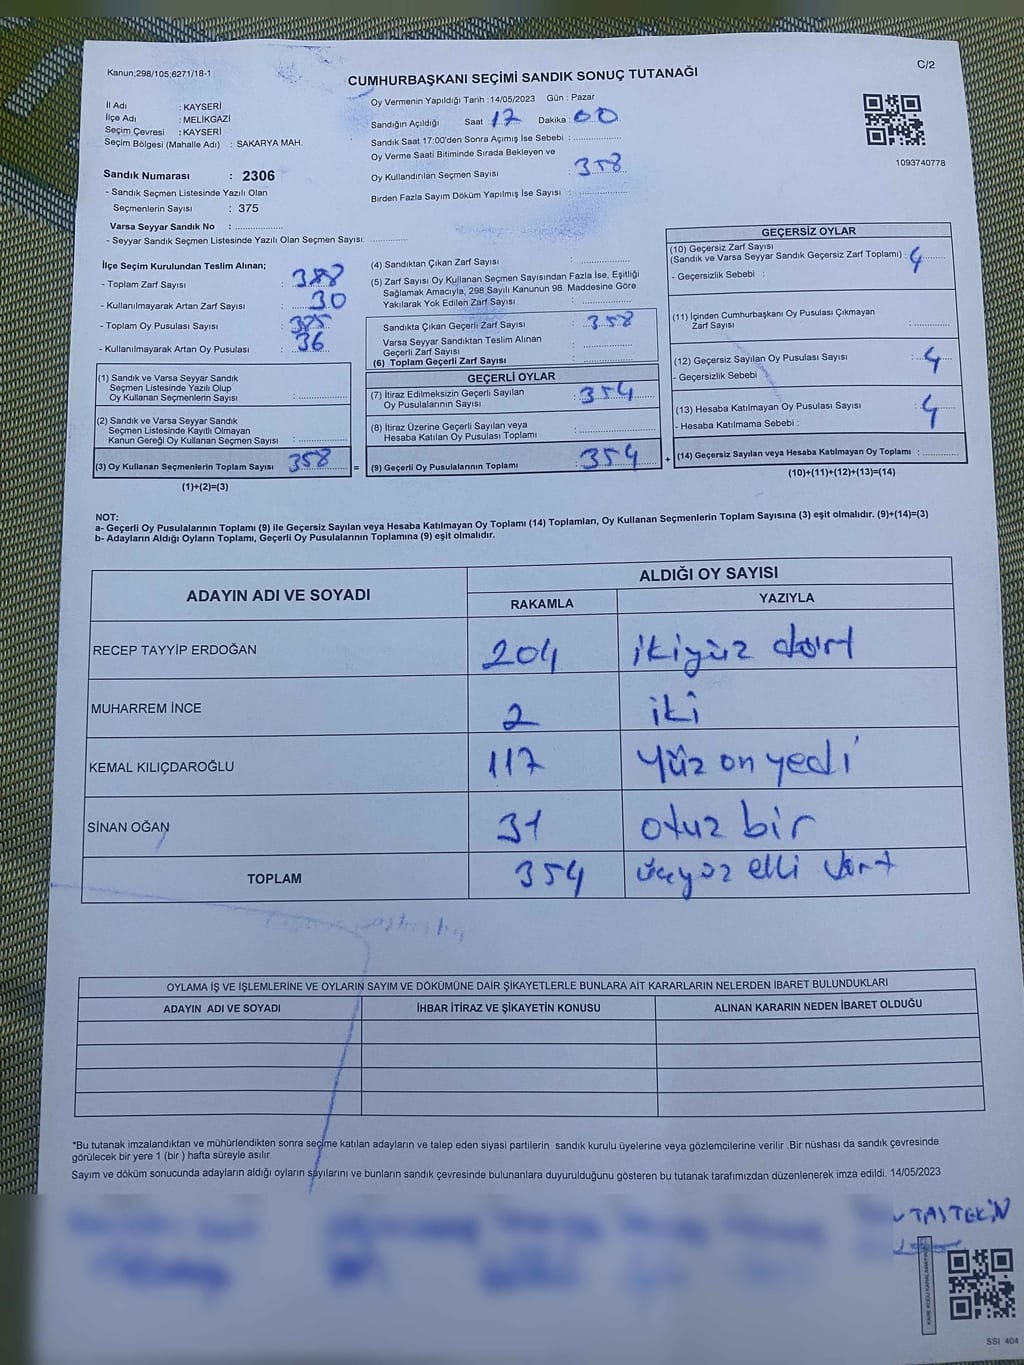 Kanun;298/105;6271/18-1
C/2
CUMHURBAŞKANI SEÇİMİ SANDIK SONUÇ TUTANAĞI
İl Adı : KAYSERİ
İlçe Adı : MELİKGAZİ
Seçim Çevresi : KAYSERİ
Seçim Bölgesi (Mahalle Adı) : SAKARYA MAH.
Oy Vermenin Yapıldığı Tarih : 14/05/2023 Gün : Pazar
Sandığın Açıldığı Saat 17 Dakika : 00
Sandık Saat 17:00'den Sonra Açımış İse Sebebi :
Oy Verme Saati Bitiminde Sırada Bekleyen ve
Oy Kullandırılan Seçmen Sayısı : 358
Birden Fazla Sayım Döküm Yapılmış İse Sayısı :
1093740778
Sandık Numarası : 2306
- Sandık Seçmen Listesinde Yazılı Olan
Seçmenlerin Sayısı : 375
Varsa Seyyar Sandık No :
- Seyyar Sandık Seçmen Listesinde Yazılı Olan Seçmen Sayısı:
İlçe Seçim Kurulundan Teslim Alınan;
- Toplam Zarf Sayısı : 388
- Kullanılmayarak Artan Zarf Sayısı : 30
- Toplam Oy Pusulası Sayısı :
- Kullanılmayarak Artan Oy Pusulası : 36
(1) Sandık ve Varsa Seyyar Sandık
Seçmen Listesinde Yazılı Olup
Oy Kullanan Seçmenlerin Sayısı :
(2) Sandık ve Varsa Seyyar Sandık
Seçmen Listesinde Kayıtlı Olmayan
Kanun Gereği Oy Kullanan Seçmen Sayısı :
(3) Oy Kullanan Seçmenlerin Toplam Sayısı : 358
(1)+(2)=(3)
(4) Sandıktan Çıkan Zarf Sayısı :
(5) Zarf Sayısı Oy Kullanan Seçmen Sayısından Fazla İse, Eşitliği
Sağlamak Amacıyla, 298 Sayılı Kanunun 98. Maddesine Göre
Yakılarak Yok Edilen Zarf Sayısı :
Sandıkta Çıkan Geçerli Zarf Sayısı : 358
Varsa Seyyar Sandıktan Teslim Alınan
Geçerli Zarf Sayısı :
(6) Toplam Geçerli Zarf Sayısı :
GEÇERLİ OYLAR
(7) İtiraz Edilmeksizin Geçerli Sayılan
Oy Pusulalarının Sayısı : 354
(8) İtiraz Üzerine Geçerli Sayılan veya
Hesaba Katılan Oy Pusulası Toplamı :
= (9) Geçerli Oy Pusulalarının Toplamı : 354
GEÇERSİZ OYLAR
(10) Geçersiz Zarf Sayısı
(Sandık ve Varsa Seyyar Sandık Geçersiz Zarf Toplamı) : 4
- Geçersizlik Sebebi :
(11) İçinden Cumhurbaşkanı Oy Pusulası Çıkmayan
Zarf Sayısı :
(12) Geçersiz Sayılan Oy Pusulası Sayısı : 4
- Geçersizlik Sebebi
(13) Hesaba Katılmayan Oy Pusulası Sayısı : 4
- Hesaba Katılmama Sebebi :
+ (14) Geçersiz Sayılan veya Hesaba Katılmayan Oy Toplamı :
(10)+(11)+(12)+(13)=(14)
NOT:
a- Geçerli Oy Pusulalarının Toplamı (9) ile Geçersiz Sayılan veya Hesaba Katılmayan Oy Toplamı (14) Toplamları, Oy Kullanan Seçmenlerin Toplam Sayısına (3) eşit olmalıdır. (9)+(14)=(3)
b- Adayların Aldığı Oyların Toplamı, Geçerli Oy Pusulalarının Toplamına (9) eşit olmalıdır.
ADAYIN ADI VE SOYADI ALDIĞI OY SAYISI
RAKAMLA YAZIYLA
RECEP TAYYİP ERDOĞAN 204 ikiyüz dört
MUHARREM İNCE 2 iki
KEMAL KILIÇDAROĞLU 117 Yüz on yedi
SİNAN OĞAN 31 otuz bir
TOPLAM 354 üçyüz elli dört
OYLAMA İŞ VE İŞLEMLERİNE VE OYLARIN SAYIM VE DÖKÜMÜNE DAİR ŞİKAYETLERLE BUNLARA AİT KARARLARIN NELERDEN İBARET BULUNDUKLARI
ADAYIN ADI VE SOYADI İHBAR İTİRAZ VE ŞİKAYETİN KONUSU ALINAN KARARIN NEDEN İBARET OLDUĞU
*Bu tutanak imzalandıktan ve mühürlendikten sonra seçime katılan adayların ve talep eden siyasi partilerin sandık kurulu üyelerine veya gözlemcilerine verilir .Bir nüshası da sandık çevresinde
görülecek bir yere 1 (bir ) hafta süreyle asılır.
Sayım ve döküm sonucunda adayların aldığı oyların sayılarını ve bunların sandık çevresinde bulunanlara duyurulduğunu gösteren bu tutanak tarafımızdan düzenlenerek imza edildi. 14/05/2023
TAŞTEKİN
SSI 404